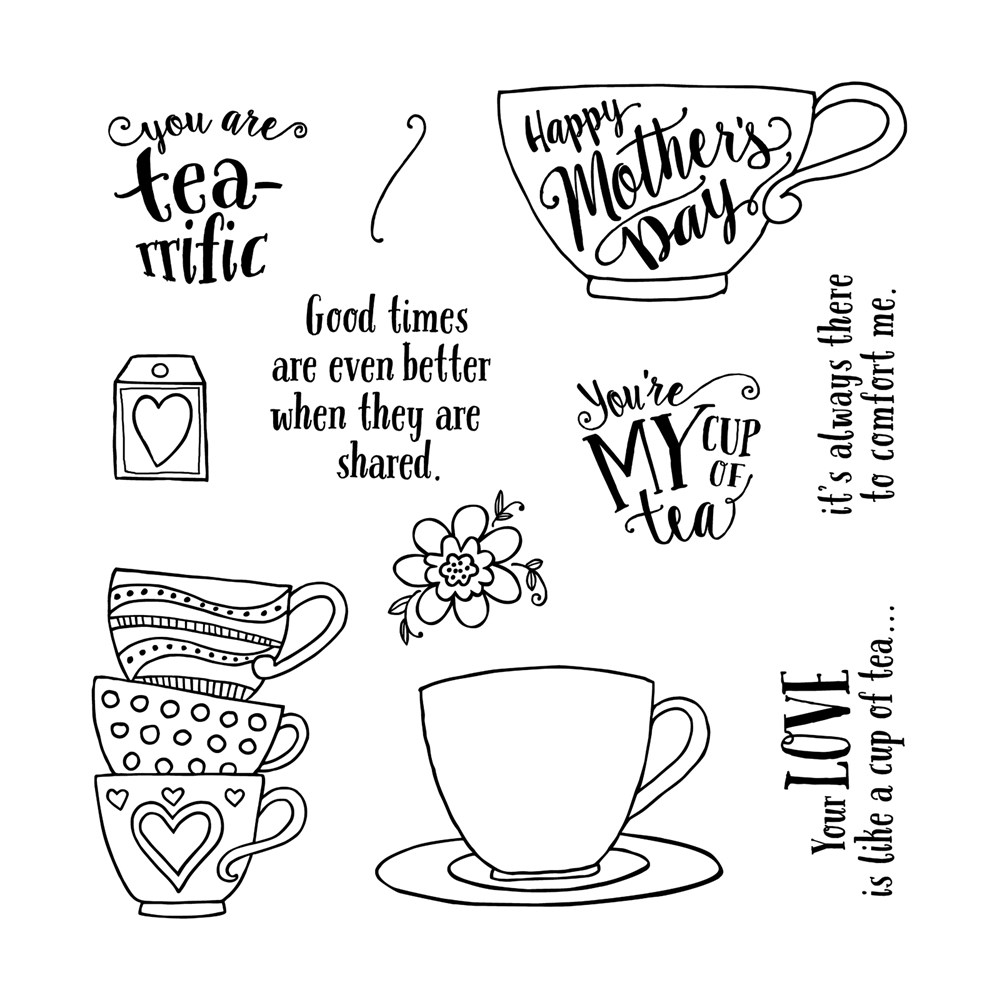 you are
tea-
rrific
Happy
Mother's
Day
Good times
are even better
when they are
shared.
You're
MY CUP
OF
tea
Your LOVE
is like a cup of tea...
it's always there
to comfort me.